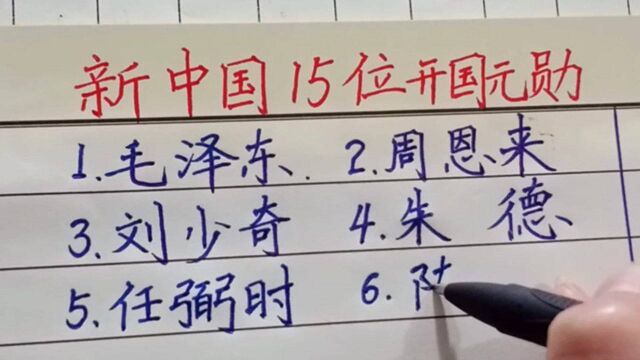 新中国15位开国元勋
1.毛泽东. 2.周恩来
3.刘少奇 4.朱 德
5.任弼时 6.